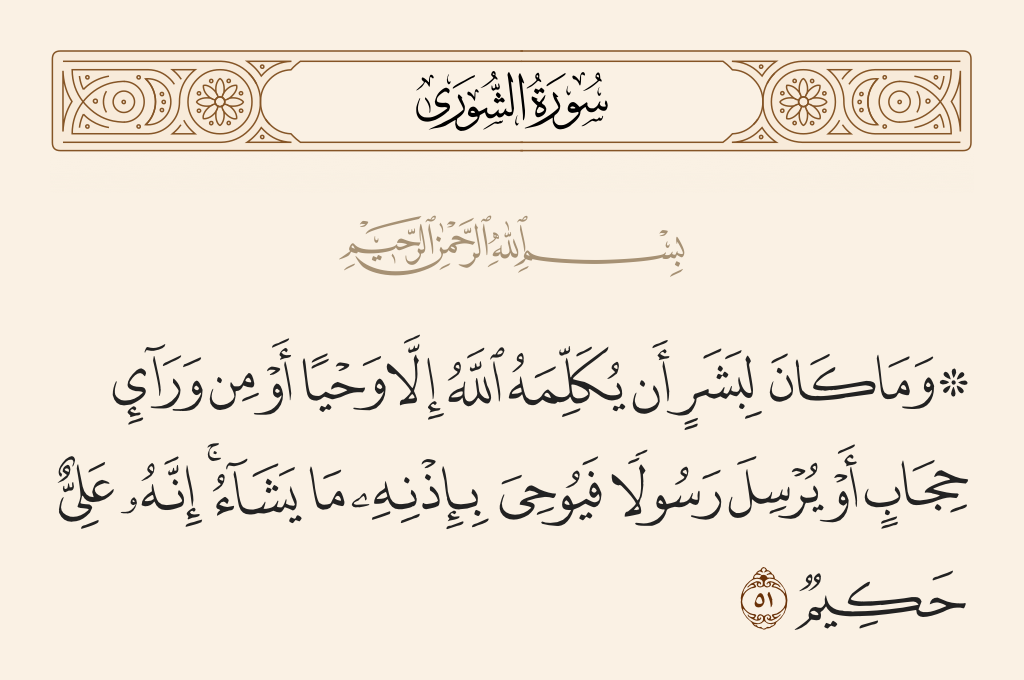 سُورَةُ الشُّورَىٰ
بِسْمِ ٱللَّهِ ٱلرَّحْمَٰنِ ٱلرَّحِيمِ
۞ وَمَا كَانَ لِبَشَرٍ أَن يُكَلِّمَهُ ٱللَّهُ إِلَّا وَحْيًا أَوْ مِن وَرَآئِ
حِجَابٍ أَوْ يُرْسِلَ رَسُولًا فَيُوحِىَ بِإِذْنِهِۦ مَا يَشَآءُ ۚ إِنَّهُۥ عَلِىٌّ
حَكِيمٌ ٥١